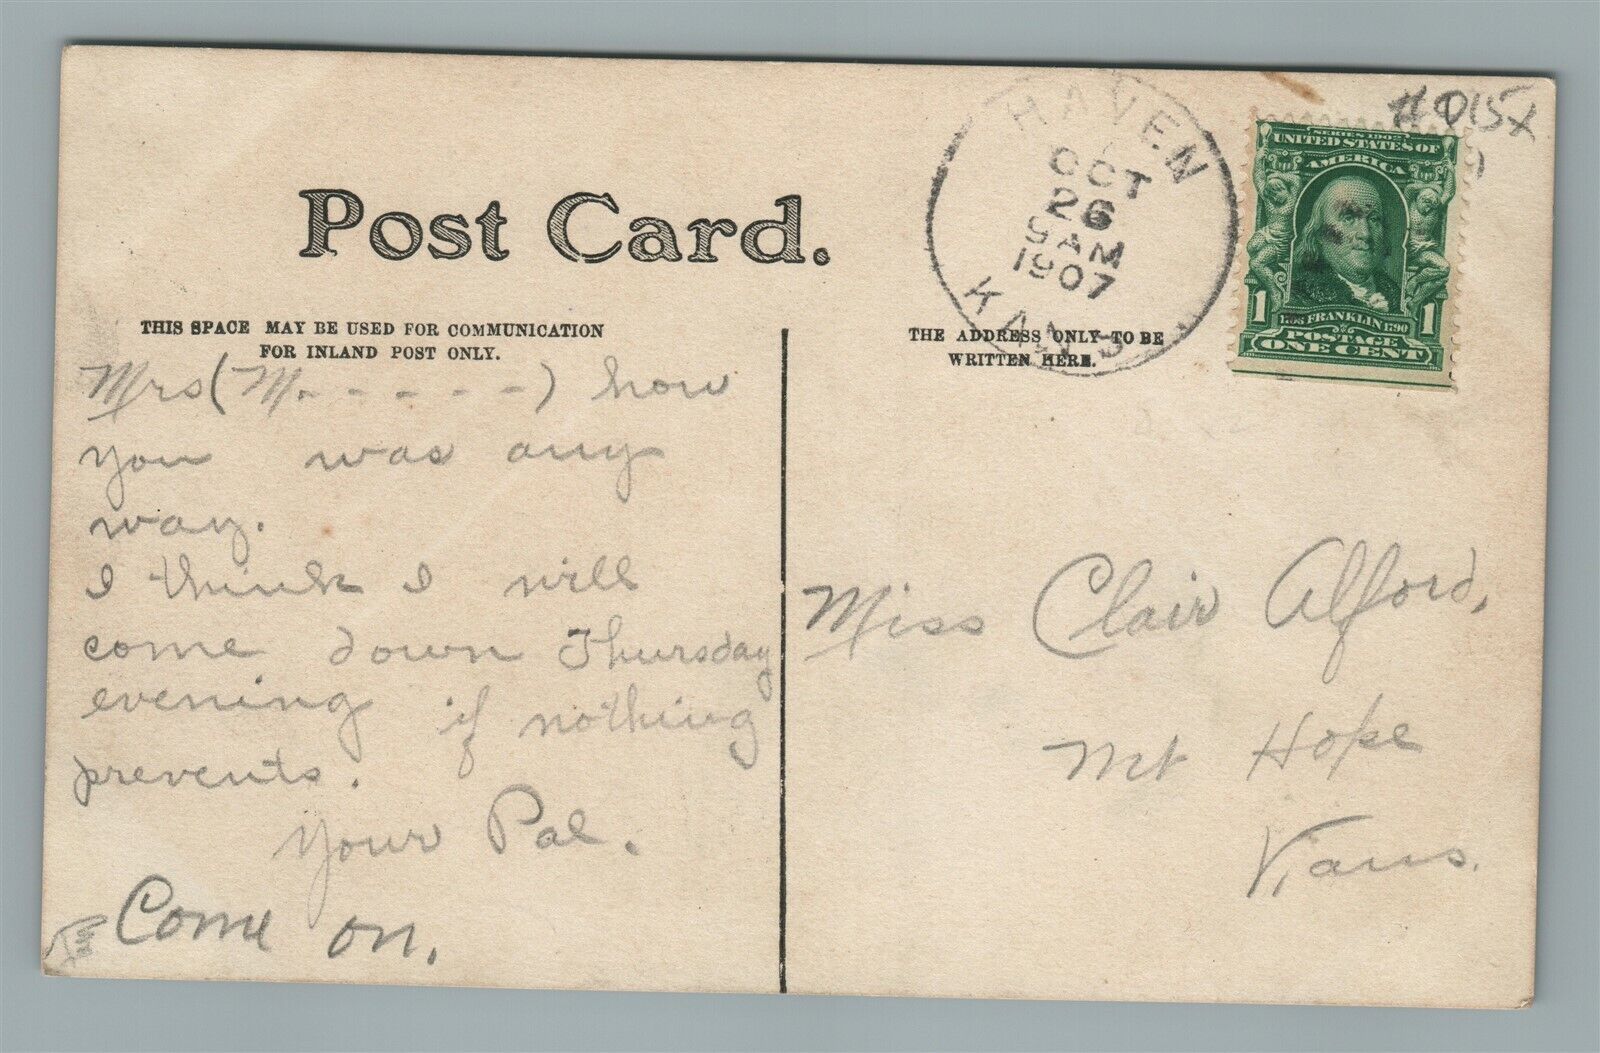 Post Card.
THIS SPACE MAY BE USED FOR COMMUNICATION
FOR INLAND POST ONLY.
Mrs (M. - - - - -) how
you was any
way.
I think I will
come down Thursday
evening if nothing
prevents.
Your Pal.
Come on.
HAVEN
OCT
26
9 AM
1907
KANS
THE ADDRESS ONLY TO BE
WRITTEN HERE.
SERIES 1902
UNITED STATES OF
AMERICA
1706 FRANKLIN 1790
1 POSTAGE 1
ONE CENT
Miss Clair Alford,
Mt Hope
Kans.